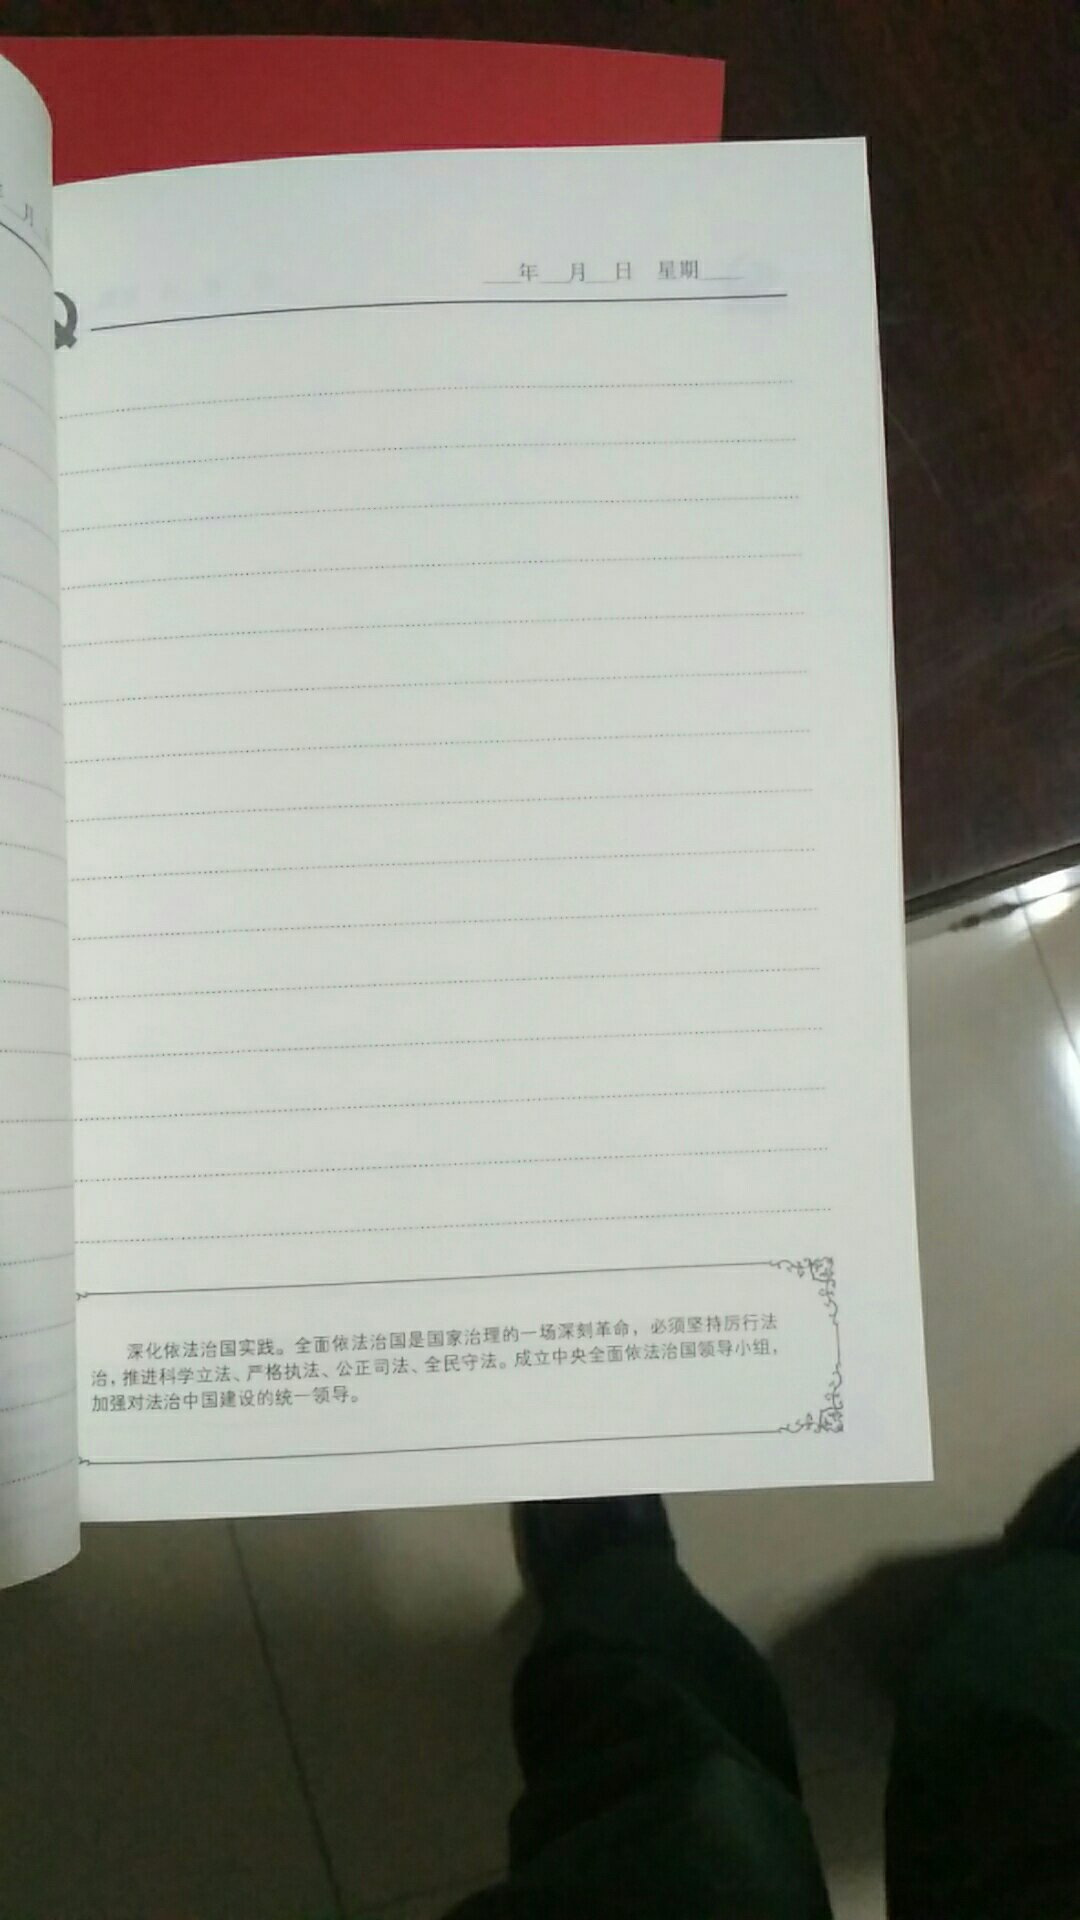 年 月
____年___月___日 星期____
深化依法治国实践。全面依法治国是国家治理的一场深刻革命，必须坚持厉行法
治，推进科学立法、严格执法、公正司法、全民守法。成立中央全面依法治国领导小组，
加强对法治中国建设的统一领导。